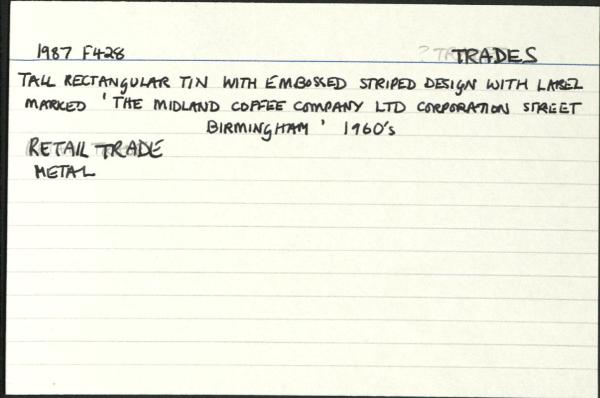 1987 F428 TRADES
TALL RECTANGULAR TIN WITH EMBOSSED STRIPED DESIGN WITH LABEL
MARKED 'THE MIDLAND COFFEE COMPANY LTD CORPORATION STREET
BIRMINGHAM' 1960's
RETAIL TRADE
METAL